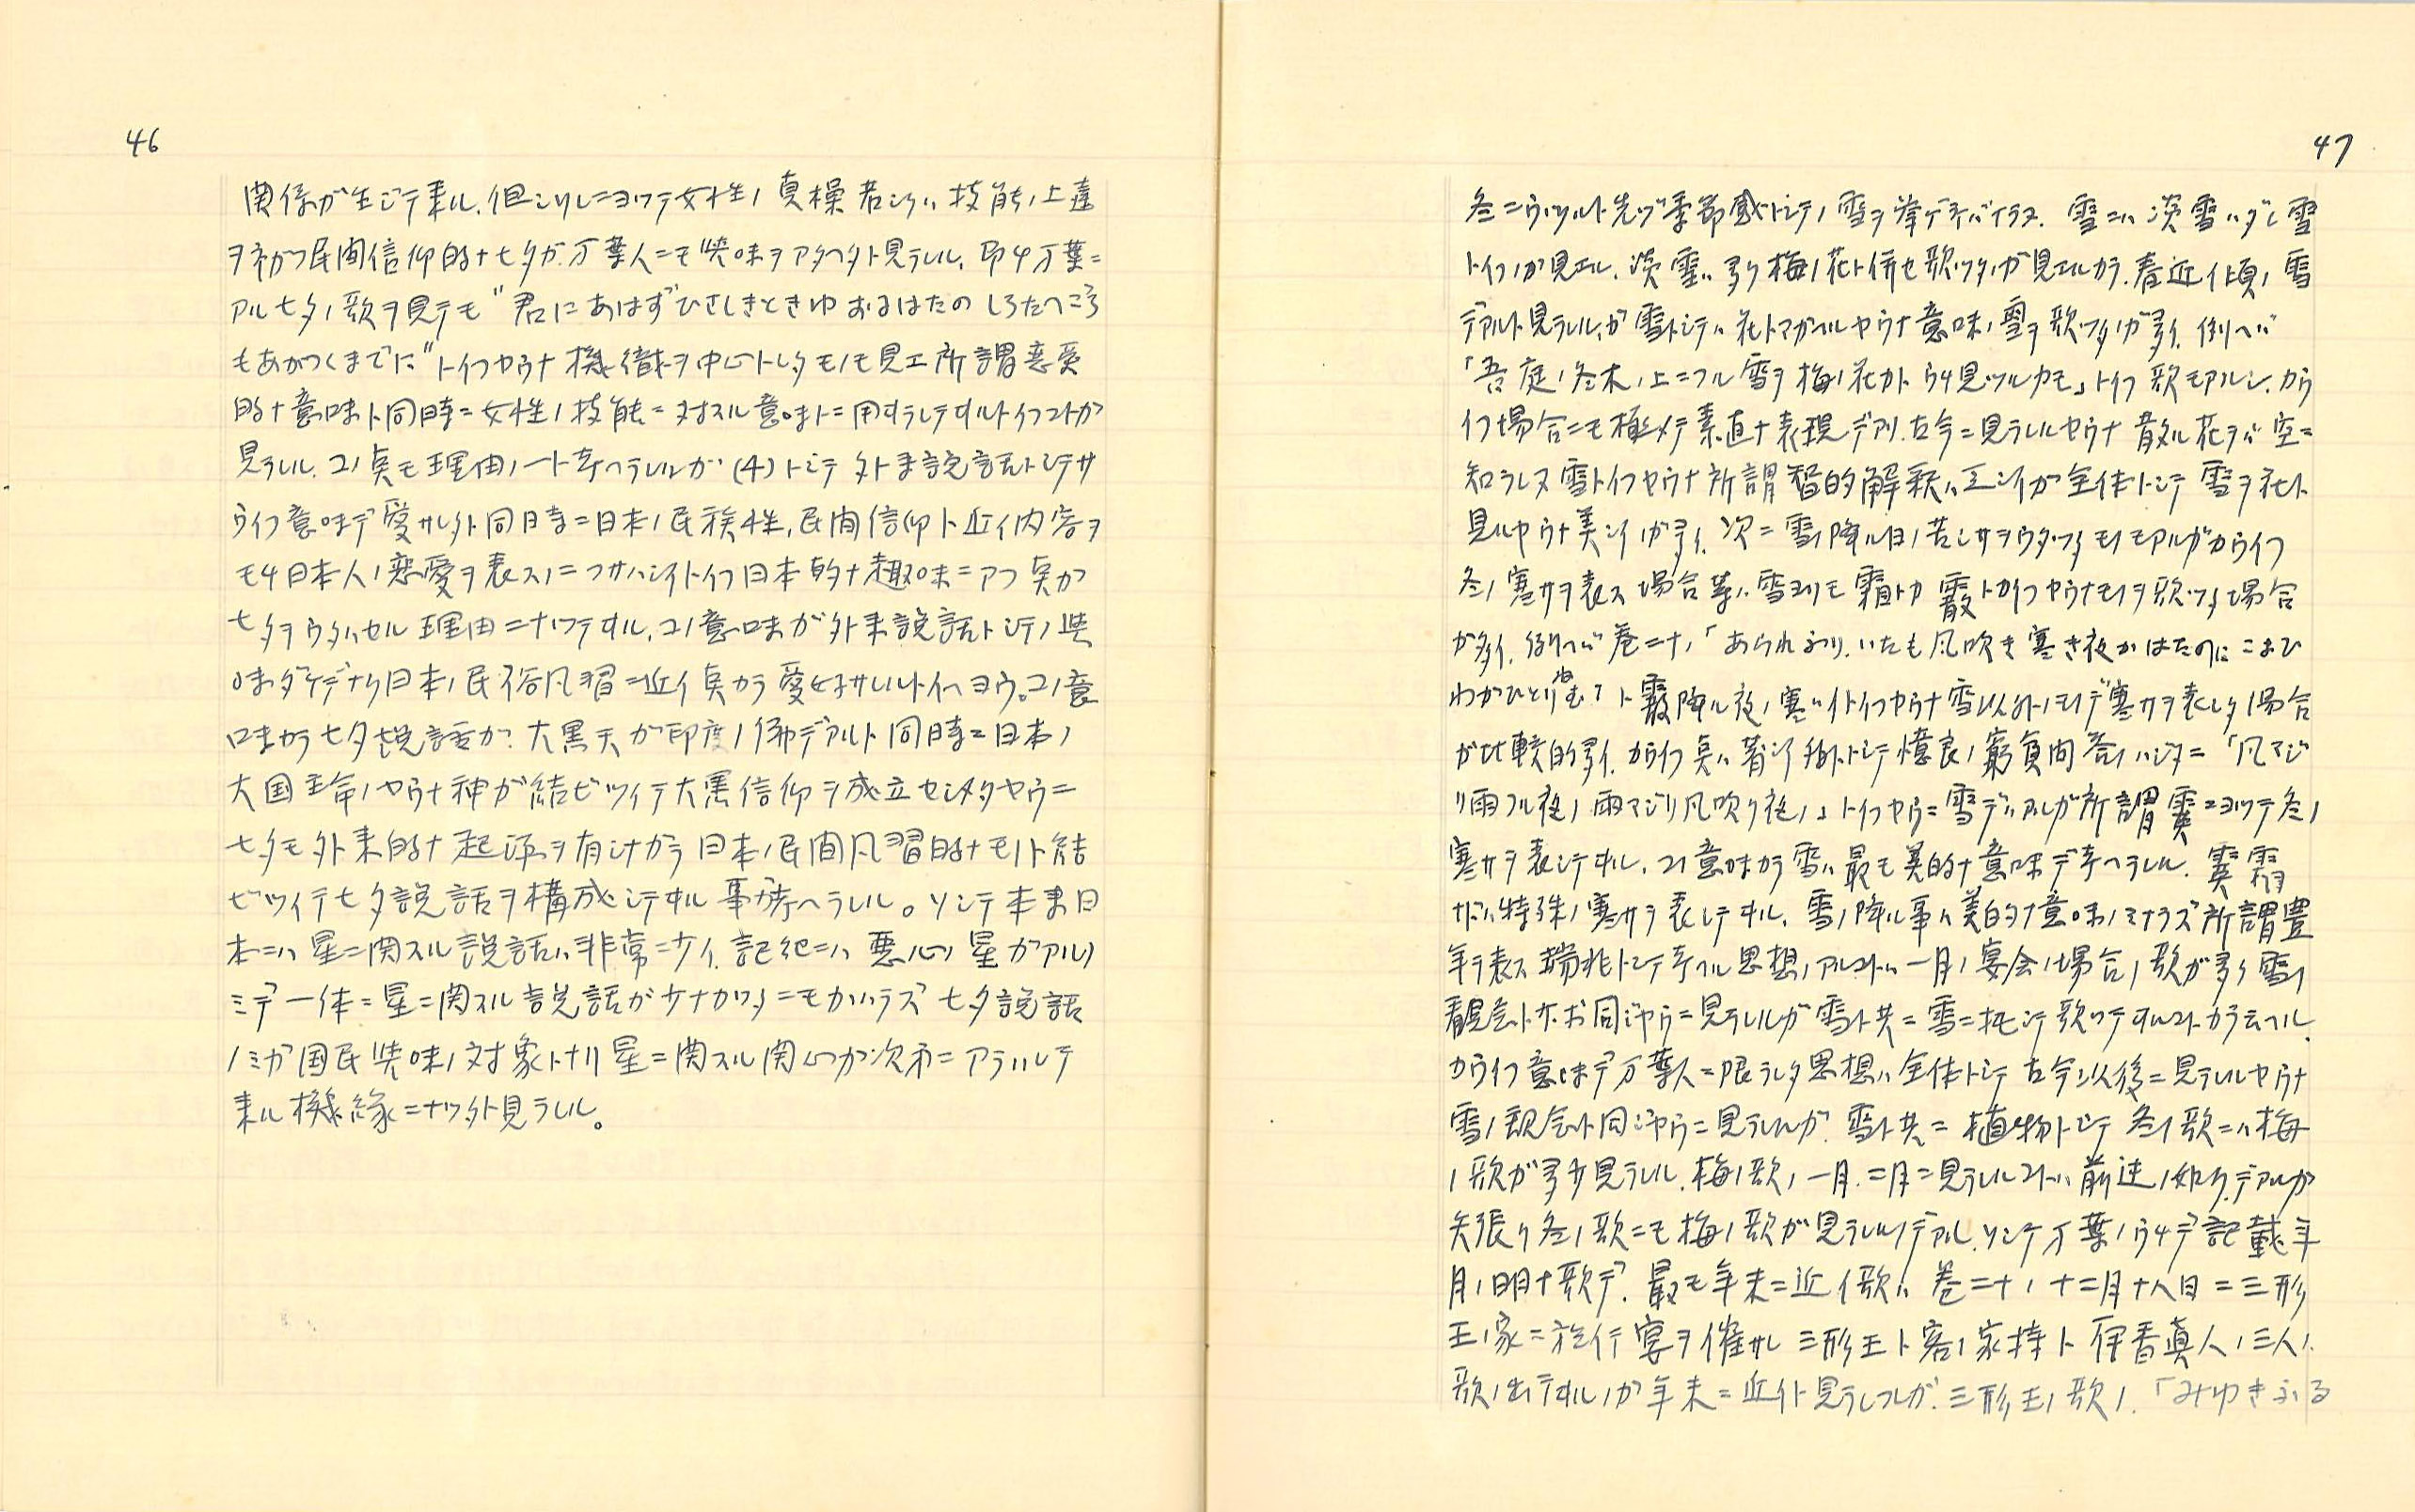 46
関係ガ生ジテ来ル.但シソレニヨツテ女性ノ貞操若シクハ技能ノ上達
ヲネガフ民間信仰的ナ七夕ガ.万葉人ニモ興味ヲアタヘタト見ラレル.即チ万葉ニ
アル七夕ノ歌ヲ見テモ"君にあはずひさしきときゆおるはたのしろたへころ
もあかつくまでに"トイフヤウナ機織ヲ中心トシタモノモ見エ所謂恋愛
的ナ意味ト同時ニ女性ノ技能ニ対スル意味トニ用ヰラレテヰルトイフコトガ
見ラレル.コノ点モ理由ノ一ト考ヘラレルガ(4)トシテ外来説話トシテサ
ウイフ意味デ愛サレタト同時ニ日本ノ民族性,民間信仰ト近イ内容ヲ
モチ日本人ノ恋愛ヲ表スノニフサハシイトイフ日本的ナ趣味ニアフ点ガ
七夕ヲウタハセル理由ニナツテヰル.コノ意味ガ外来説話トシテノ興
味ダケデナク日本ノ民俗風習ニ近イ点カラ愛好サレルトイヘヨウ。コノ意
味カラ七夕説話ガ.大黒天ガ印度ノ佛デアルト同時ニ日本ノ
大国主命ノヤウナ神ガ結ビツイテ大黒信仰ヲ成立セシメタヤウニ
七夕モ外来的ナ起源ヲ有シナガラ日本ノ民間風習的ナモノト結
ビツイテ七夕説話ヲ構成シテヰル事ガ考ヘラレル。ソシテ本来日
本ニハ星ニ関スル説話ハ非常ニ少イ.記紀ニハ悪心ノ星ガアルノ
ミデ一体ニ星ニ関スル説話ガ少ナカツタニモカハラズ七夕説話
ノミガ国民興味ノ対象トナリ星ニ関スル関心ガ次第ニアラハレテ
来ル機縁ニナツタト見ラレル。
47
冬ニウツルト先ヅ季節感トシテノ雪ヲ挙ゲネバナラヌ.雪ニハ淡雪ハダレ雪
トイフノガ見エル.淡雪ハ多ク梅ノ花ト併セ歌ツタノガ見エルカラ.春近イ頃ノ雪
デアルト見ラレル.ガ雪トシテハ花トマガヘルヤウナ意味ノ雪ヲ歌ツタノガ多イ.例ヘバ
「吾庭ノ冬木ノ上ニフル雪ヲ梅ノ花カトウチ見ツルカモ」トイフ歌モアルシ.カウ
イフ場合ニモ極メテ素直ナ表現デアリ.古今ニ見ラレルヤウナ散ル花ヲバ空ニ
知ラレヌ雪トイフヤウナ所謂智的解釈ハ乏シイガ全体トシテ雪ヲ花ト
見ルヤウナ美シイノガ多イ.次ニ雪ノ降ル日ノ苦シサヲウタツタモノモアルガカウイフ
冬ノ寒サヲ表ス場合等ハ雪ヨリモ霜トカ霰トカイフヤウナモノヲ歌ツタ場合
ガ多イ.例ヘバ巻二十ノ「あられふり.いたも風吹き寒き夜かはたのにこよひ
わがひとりねむ」ト霰降ル夜ノ寒イトイフヤウナ雪以外ノモノデ寒サヲ表シタ場合
ガ比較的多イ.カウイフ点ハ著シイ例トシテ憶良ノ窮貧問答ノハジメニ「風マジ
リ雨フル夜ノ雨マジリ風吹ク夜ノ」トイフヤウニ雪デハアルガ所謂霙ニヨツテ冬ノ
寒サヲ表シテヰル.コノ意味カラ雪ハ最モ美的ナ意味デ考ヘラレル.霙霜
ナドハ特殊ノ寒サヲ表シテヰル.雪ノ降ル事ハ美的ナ意味ノミナラズ所謂豊
年ヲ表ス瑞兆トシテ考ヘル思想ノアルコトハ一月ノ宴会ノ場合ノ歌ガ多ク雪ノ
観念トホボ同ジヤウニ見ラレルガ雪ト共ニ雪ニ托シテ歌ツテヰルコトカラ云ヘル.
カウイフ意味デ万葉人ニ限ラレタ思想ハ全体トシテ古今以後ニ見ラレルヤウナ
雪ノ観念ト同ジヤウニ見ラレルガ.雪ト共ニ植物トシテ冬ノ歌ニハ梅
ノ歌ガ多ク見ラレル.梅ノ歌ノ一月.二月ニ見ラレルコトハ前述ノ如クデアルガ
矢張リ冬ノ歌ニモ梅ノ歌ガ見ラレルノデアル.ソシテ万葉ノウチデ記載年
月ノ明ナ歌デ.最モ年末ニ近イ歌ハ巻二十ノ十二月十八日ニ三形
王ノ家ニ於イテ宴ヲ催サレ三形王ト客ノ家持ト伊香真人ノ三人ノ
歌ノ出テヰルノガ年末ニ近イト見ラレルガ.三形王ノ歌ノ.「みゆきふる